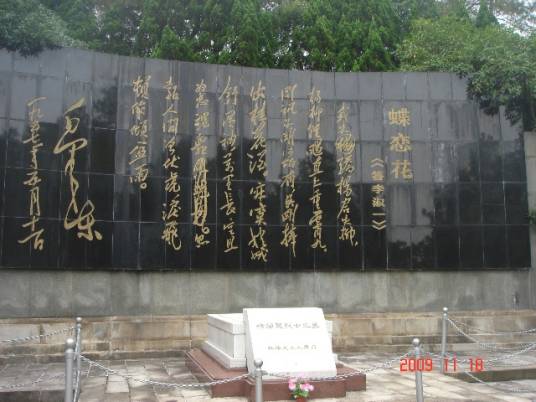 蝶恋花
《答李淑一》
我失骄杨君失柳
杨柳轻飏直上重霄九
问讯吴刚何所有吴刚捧
出桂花酒寂寞嫦娥
舒广袖万里长空且
为忠魂舞忽
报人间曾伏虎泪飞
顿作倾盆雨
毛泽东
一九五七年五月十一日
烈士之墓
2009 11 18